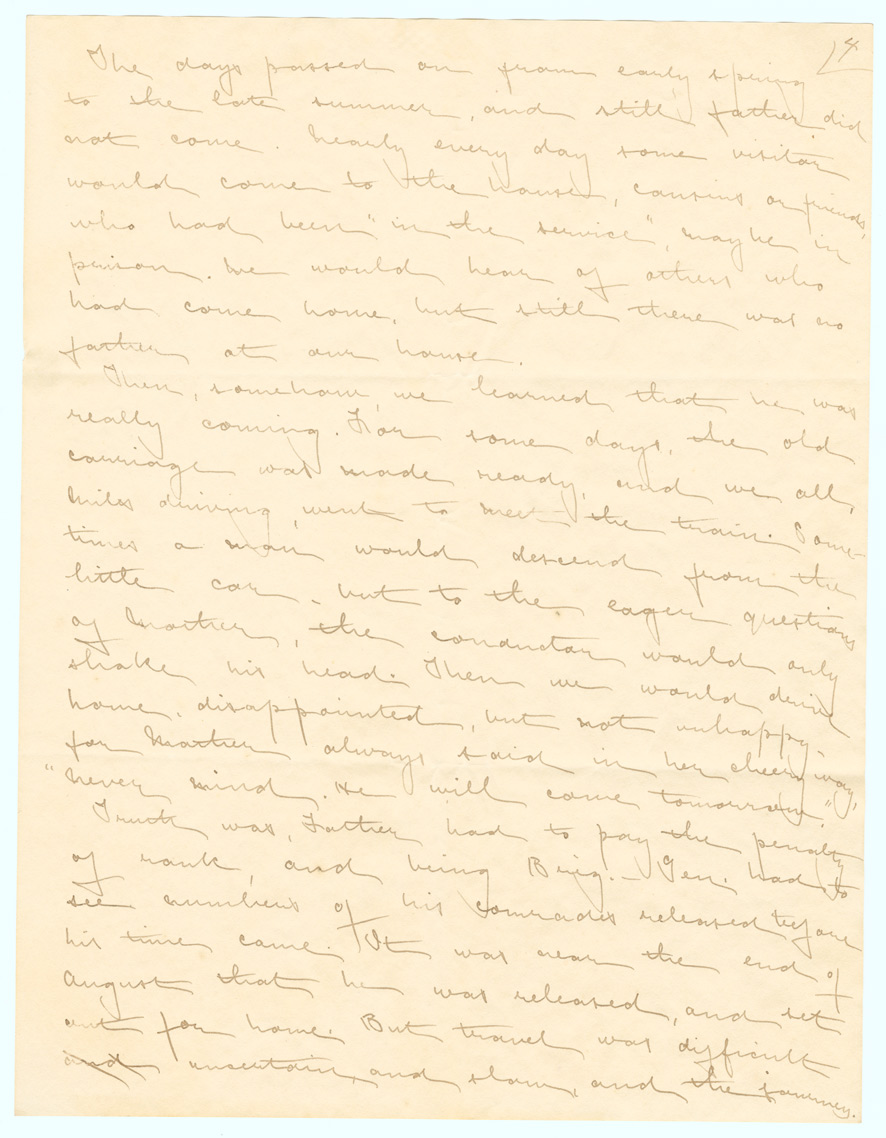 4
The days passed on from early spring
to the late summer, and still father did
not come. Nearly every day some visitor
would come to the house, cousins or friends,
who had been "in the service", maybe in
prison. We would hear of others who
had come home, but still there was no
father at our house.
Then, somehow, we learned that he was
really coming. For some days, the old
carriage was made ready, and we all,
miles driving, went to meet the train. Some-
times a man would descend from the
little car, but to the eager questions
of Mother, the conductor would only
shake his head. Then we would drive
home, disappointed, but not unhappy,
for Mother always said in her cheery way,
"Never mind. He will come tomorrow."
Truth was, Father had to pay the penalty
of rank, and being Brig.-Gen. had to
see numbers of his comrades released before
his time came. It was near the end of
August that he was released, and set
out for home. But travel was difficult
and uncertain, and slow, and the journey.